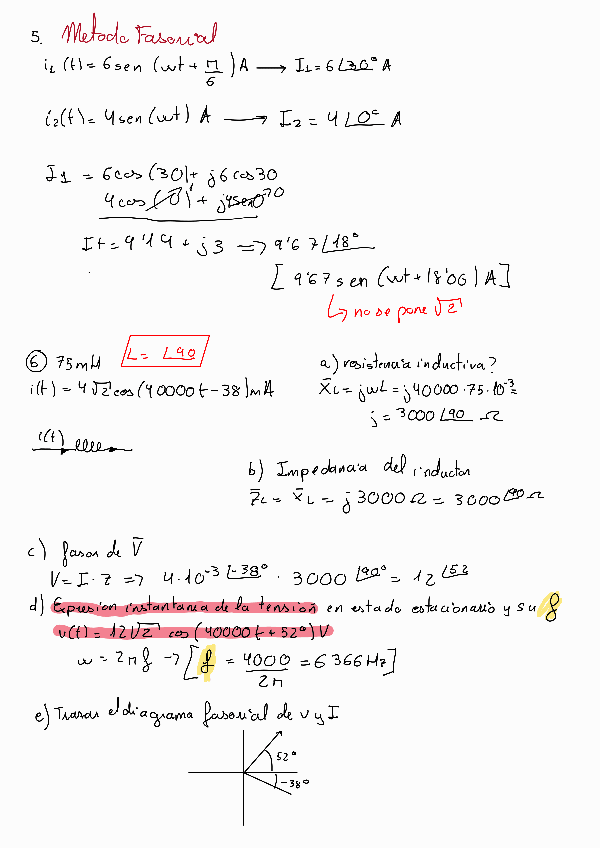 5. Metodo Fasorial
i₁ (t) = 6 sen (wt + π/6) A → I₁ = 6∠30° A
i₂(t) = 4 sen (wt) A → I₂ = 4∠0° A
I₁ = 6 cos (30) + j6 cos 30
4 cos (0) + j4sen0
It = 9'19 + j3 => 9'67∠18°
[ 9'67 sen (wt + 18'06) A ]
↳ no se pone √2
⑥ 75mH L = ∠90 a) resistencia inductiva?
i(t) = 4√2 cos (40000t - 38) mA X̄L = jwL = j40000 · 75 · 10⁻³ =
j = 3000∠90 Ω
i(t)
b) Impedancia del inductor
Z̄L = X̄L = j 3000 Ω = 3000∠90 Ω
c) fasor de V̄
V = I · Z => 4·10⁻³∠-38° · 3000∠90° = 12∠52
d) Expresion instantania de la tension en estado estacionario y su f
v(t) = 12√2 cos (40000t + 52°) V
w = 2πf → [ f = 4000/2π = 6366 Hz ]
e) Trasar el diagrama fasorial de v y I
52°
-38°